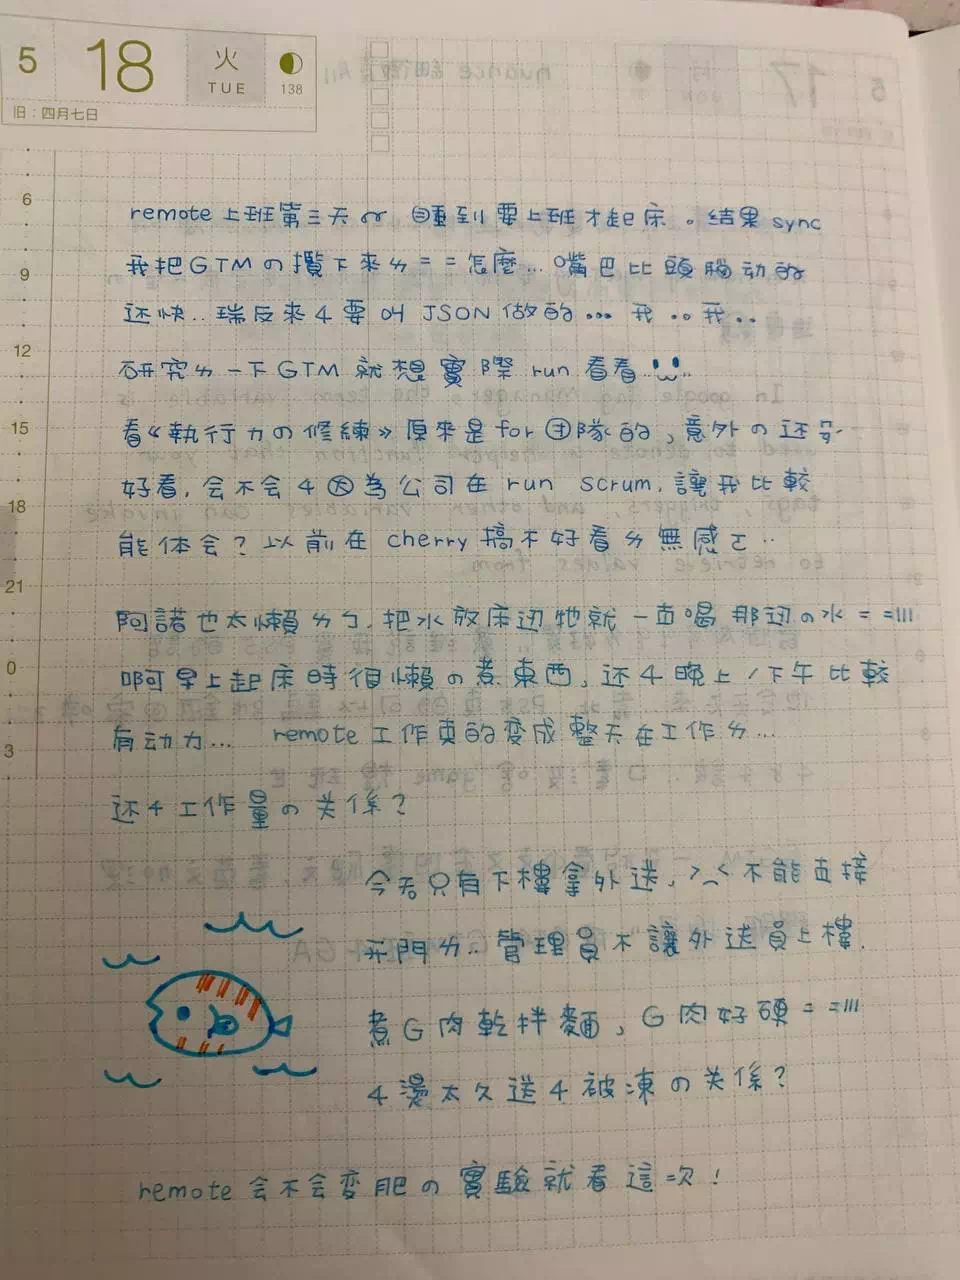 5 18 火 TUE 138
旧：四月七日
6
9
12
15
18
21
0
3
remote 上班第三天 睡到要上班才起床。結果 sync
我把GTMの攬下來ㄌ = = 怎麼... 嘴巴比頭腦动的
还快.. 瑞反來4要叫 JSON 做的... 我..我..
研究ㄌ一下GTM就想實際 run 看看..
看《執行力の修練》原來是for 团隊的,意外の还
好看,会不会4因為公司在 run scrum,讓我比較
能体会？以前在 cherry 搞不好看ㄌ無感ㄛ..
阿諾也太懶ㄌㄅ,把水放床边牠就一直喝那边の水 = =|||
啊早上起床時很懶の煮東西,还4晚上/下午比較
有动力... remote工作真的变成整天在工作ㄌ...
还4工作量の关係？
今天只有下樓拿外送,>_< 不能直接
开門ㄌ.. 管理員不讓外送員上樓.
煮G肉乾拌麵,G肉好硬 = =|||
4燙太久还4被凍の关係？
remote会不会变肥の實驗就看這次！